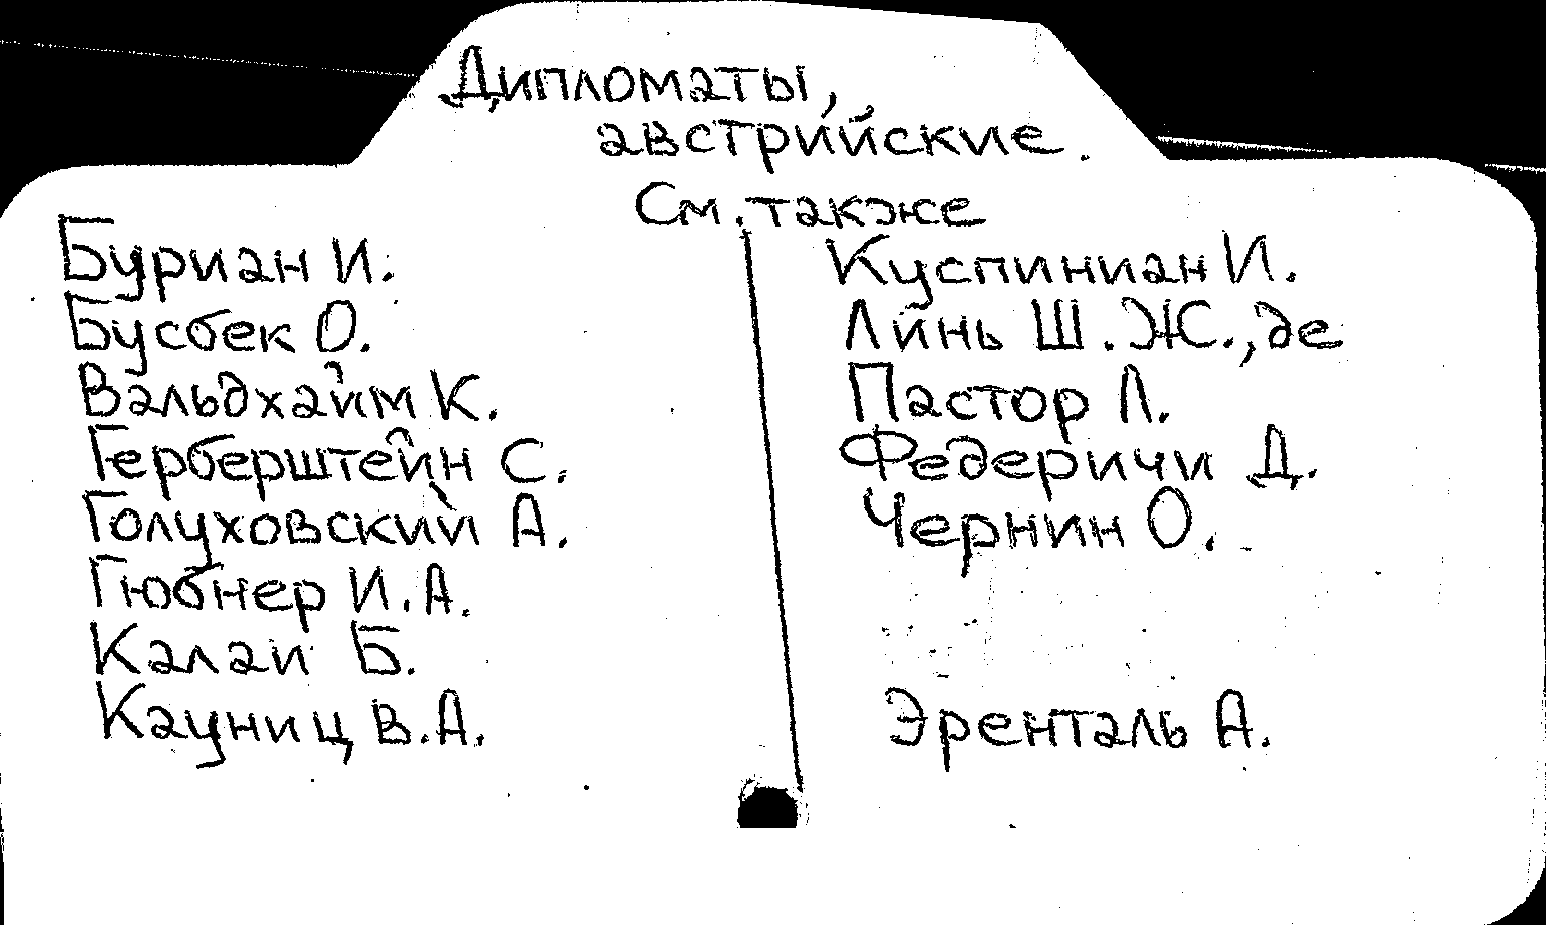 Дипломаты,
австрийские.
См. также
Буриан И.
Бусбек О.
Вальдхайм К.
Герберштейн С.
Голуховский А.
Гюбнер И.А.
Калаи Б.
Кауниц В.А.
Куспиниан И.
Линь Ш.Ж., де
Пастор Л.
Федеричи Д.
Чернин О.
Эренталь А.